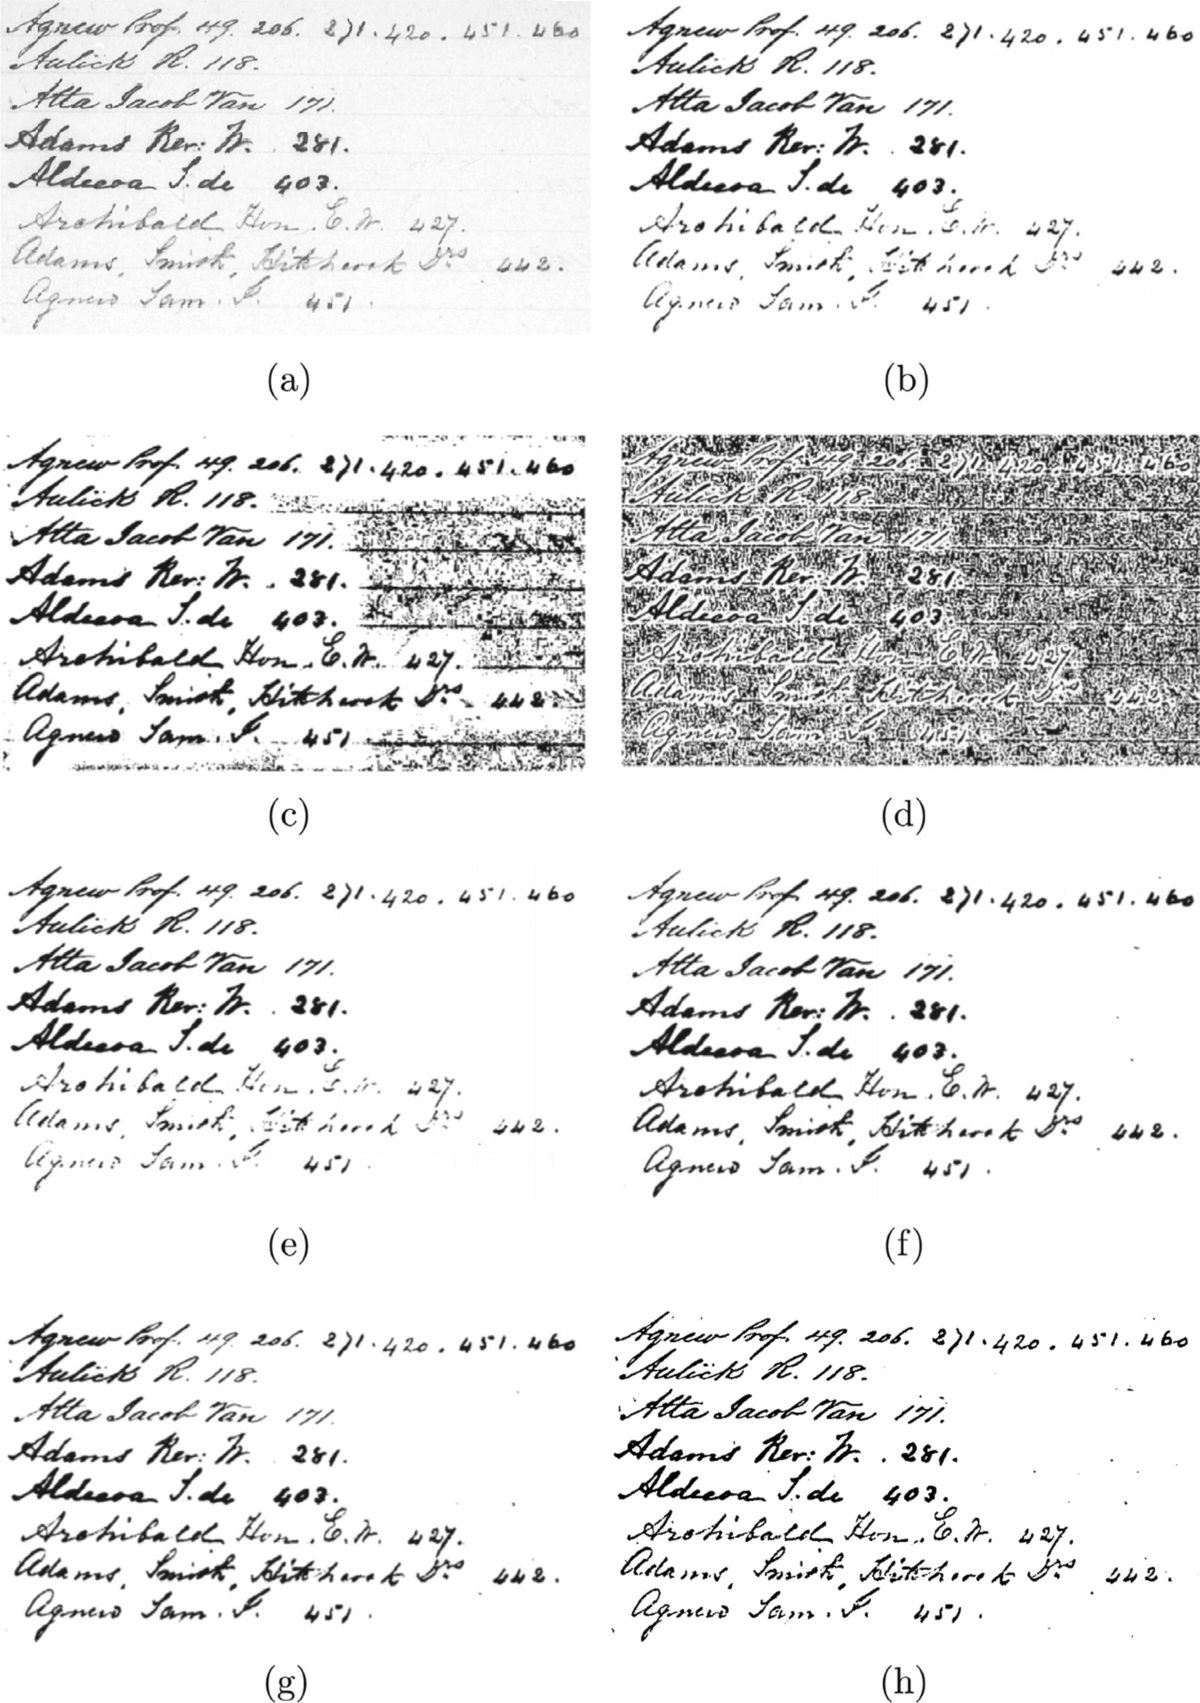 Agnew Prof. 49. 206. 271. 420. 451. 460
Aulick R. 118.
Atta Jacob Van 171.
Adams Rev: W. 281.
Aldecoa J. de 403.
Archibald Hon. E. W. 427.
Adams, Smith, Hitchcock Drs 442.
Agnew Sam. J. 451.
(a)
Agnew Prof. 49. 206. 271. 420. 451. 460
Aulick R. 118.
Atta Jacob Van 171.
Adams Rev: W. 281.
Aldecoa J. de 403.
Archibald Hon. E. W. 427.
Adams, Smith, Hitchcock Drs 442.
Agnew Sam. J. 451.
(b)
Agnew Prof. 49. 206. 271. 420. 451. 460
Aulick R. 118.
Atta Jacob Van 171.
Adams Rev: W. 281.
Aldecoa J. de 403.
Archibald Hon. E. W. 427.
Adams, Smith, Hitchcock Drs 442.
Agnew Sam. J. 451
(c)
Agnew Prof. 49. 206. 271. 420. 451. 460
Aulick R. 118.
Atta Jacob Van 171.
Adams Rev: W. 281.
Aldecoa J. de 403.
Archibald Hon. E. W. 427.
Adams, Smith, Hitchcock Drs 442.
Agnew Sam. J. 451.
(d)
Agnew Prof. 49. 206. 271. 420. 451. 460
Aulick R. 118.
Atta Jacob Van 171.
Adams Rev: W. 281.
Aldecoa J. de 403.
Archibald Hon. E. W. 427.
Adams, Smith, Hitchcock Drs 442.
Agnew Sam. J. 451.
(e)
Agnew Prof. 49. 206. 271. 420. 451. 460
Aulick R. 118.
Atta Jacob Van 171.
Adams Rev: W. 281.
Aldecoa J. de 403.
Archibald Hon. E. W. 427.
Adams, Smith, Hitchcock Drs 442.
Agnew Sam. J. 451.
(f)
Agnew Prof. 49. 206. 271. 420. 451. 460
Aulick R. 118.
Atta Jacob Van 171.
Adams Rev: W. 281.
Aldecoa J. de 403.
Archibald Hon. E. W. 427.
Adams, Smith, Hitchcock Drs 442.
Agnew Sam. J. 451.
(g)
Agnew Prof. 49. 206. 271. 420. 451. 460
Aulick R. 118.
Atta Jacob Van 171.
Adams Rev: W. 281.
Aldecoa J. de 403.
Archibald Hon. E. W. 427.
Adams, Smith, Hitchcock Drs 442.
Agnew Sam. J. 451.
(h)